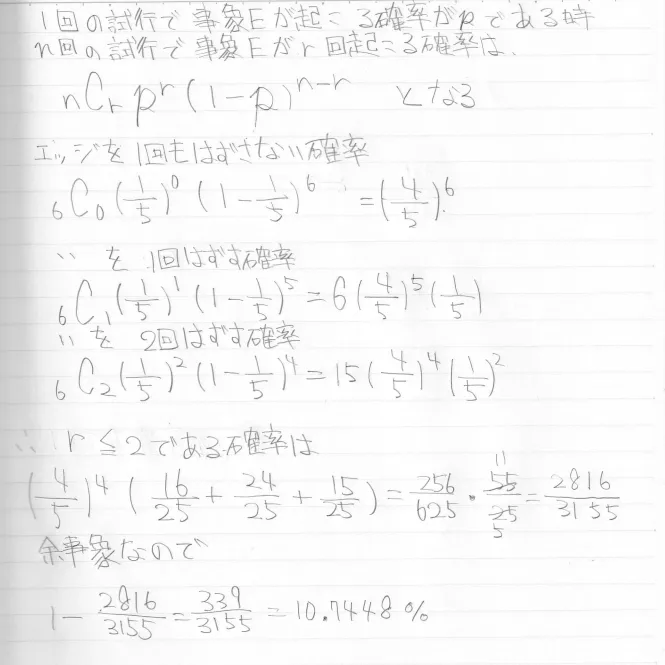 1回の試行で事象Eが起こる確率がpである時
n回の試行で事象Eがr回起こる確率は、
nCr p^r (1-p)^{n-r} となる
エッジを1回もはずさない確率
6C0 (1/5)^0 (1-1/5)^6 = (4/5)^6
〃 を 1回はずす確率
6C1 (1/5)^1 (1-1/5)^5 = 6(4/5)^5 (1/5)
〃 を 2回はずす確率
6C2 (1/5)^2 (1-1/5)^4 = 15(4/5)^4 (1/5)^2
∴ r≦2である確率は
(4/5)^4 (16/25 + 24/25 + 15/25) = 256/625 · 55/25 = 2816/3155
11
5
余事象なので
1 - 2816/3155 = 339/3155 = 10.7448%